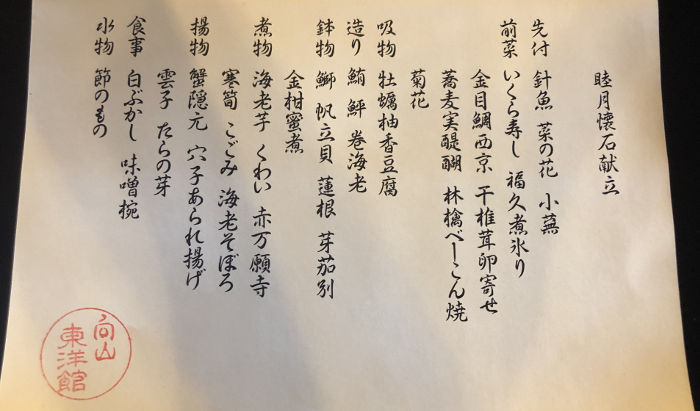 睦月懐石献立
先付 針魚 菜の花 小蕪
前菜 いくら寿し 福久煮氷り
金目鯛西京 干椎茸卵寄せ
蕎麦実醍醐 林檎べーこん焼
菊花
吸物 牡蠣柚香豆腐
造り 鮪 鮃 巻海老
鉢物 鰤 帆立貝 蓮根 芽茄別
金柑蜜煮
煮物 海老芋 くわい 赤万願寺
寒筍 こごみ 海老そぼろ
揚物 蟹隠元 穴子あられ揚げ
雲子 たらの芽
食事 白ぶかし 味噌椀
水物 節のもの
向山
東洋館